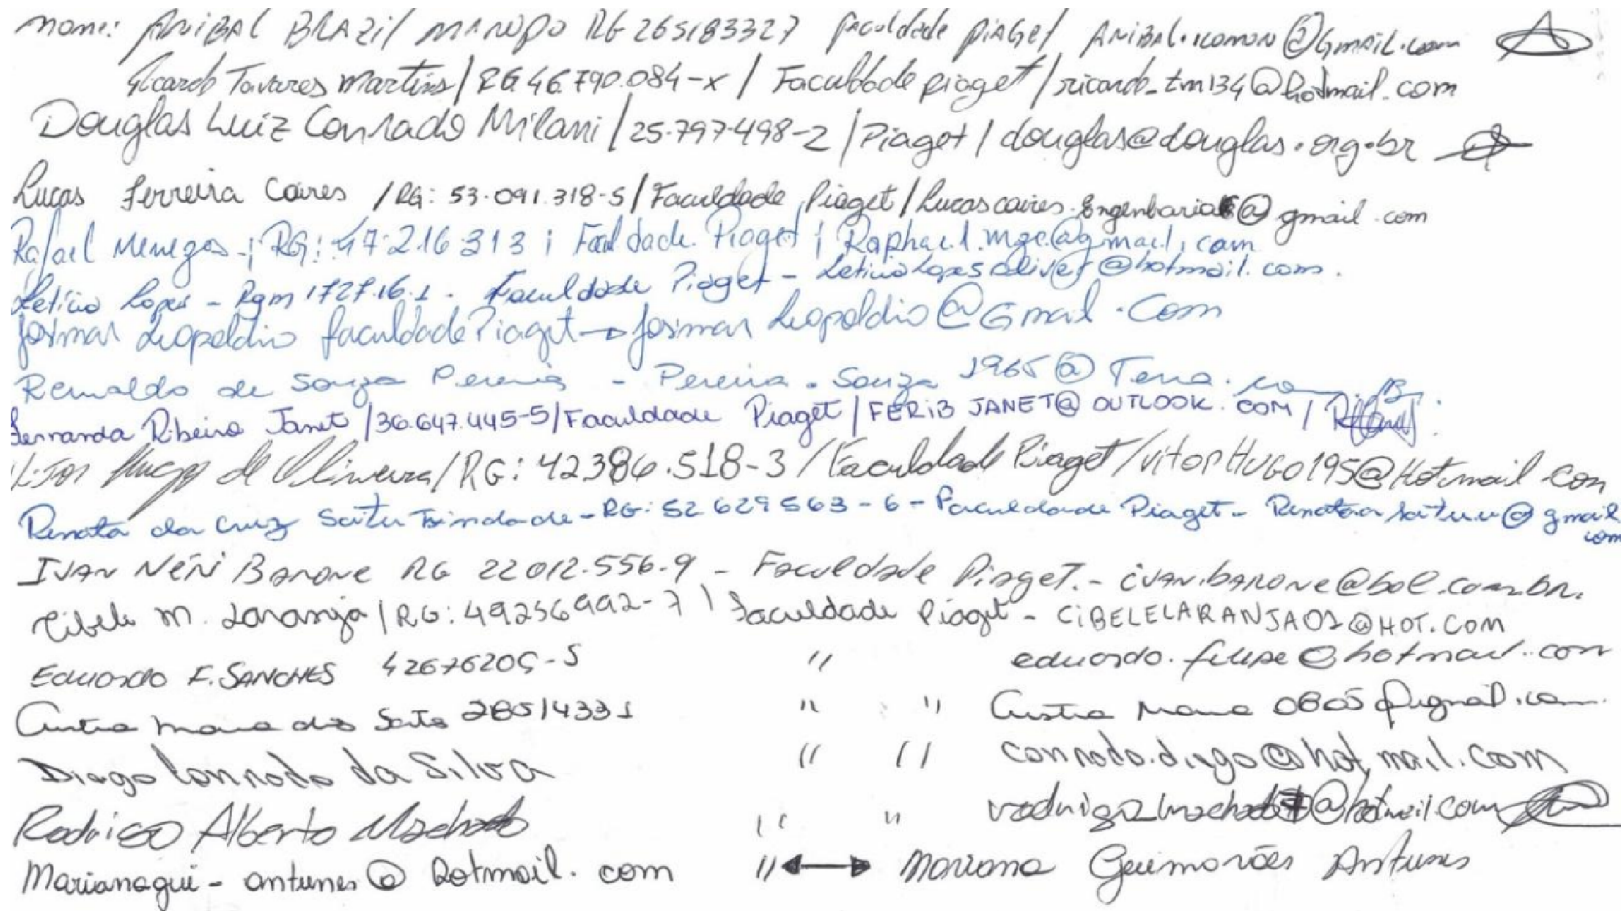 nome: ANIBAL BRAZil RG 265183327 faculdade PiAGet ANiBAL.@Gmail.com
Ricardo Tavares Martins / RG 46.790.084-x / Faculdade piaget / ricardo_tm134@hotmail.com
Douglas Luiz Conrado Milani / 25.797.498-2 / Piaget / douglas@douglas.org.br
Lucas Ferreira Caires / RG: 53.091.318-5 / Faculdade Piaget / Lucascaires.Engenharia@gmail.com
Rafael Menezes ; RG: 47.216.313 ; Piaget ; Raphael.mze@gmail.com
Letícia Lopes - Rgm 172716.1. Faculdade Piaget - leticialopesoliver@hotmail.com.
Josmar Leopoldio faculdade Piaget → Josmar Leopoldio@Gmail.Com
Reinaldo de Souza Pereira - Pereira.Souza 1965@Terra.
Fernanda Ribeiro Janet / 36.647.445-5 / Faculdade Piaget / FERIB JANET@OUTLOOK.COM /
Vitor Hugo de Oliveira / RG: 42386.518-3 / Faculdade Piaget / vitorHUGO195@Hotmail.Com
Renata da Cruz - RG: 52 629563-6 - Faculdade Piaget - @gmail
com
IVAN NERI BARONE RG 22012.556.9 - Faculdade PiageT. - ivan.barone@bol.com.br.
Cibele M. Laranja / RG: 49256992-7 | Faculdade Piaget - CiBELELARANJA01@HOT.COM
Eduardo F. SANCHES 42676205-5 " eduardo.filipe@hotmail.com
Maria dos 28514331 " "
Diego Conrado da Silva " " conrado.diego@hot,mail.com
Rodrigo Alberto Machado " " @hotmail.com
Marianagui-antunes@hotmail.com " ↔ Mariana Guimarães Antunes